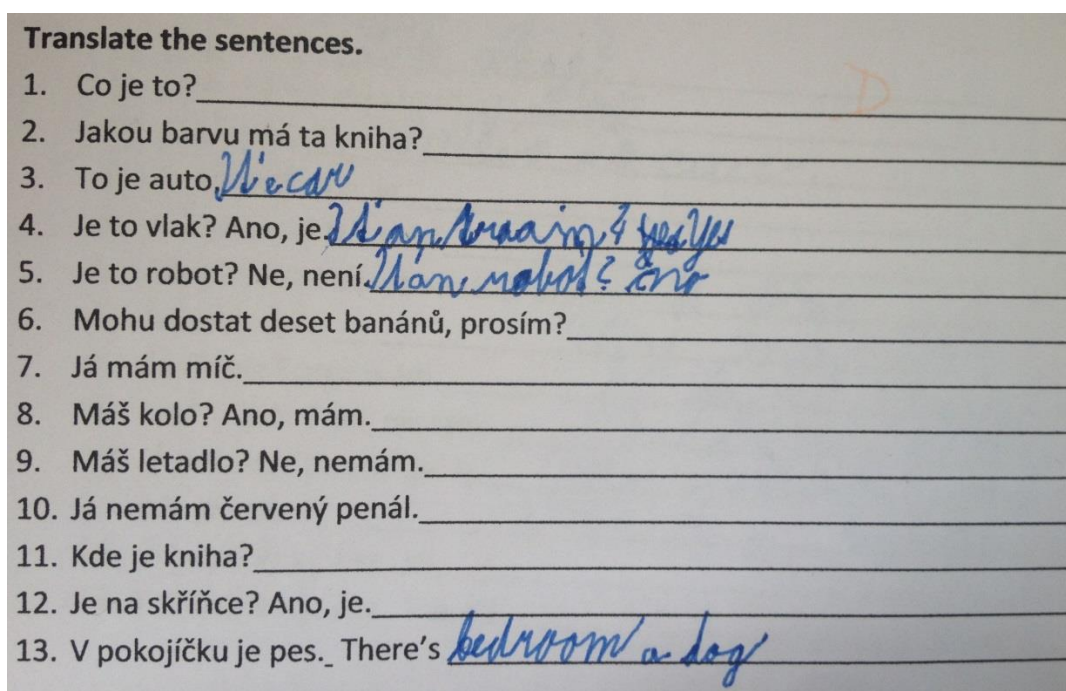 Translate the sentences.
1. Co je to?
D
2. Jakou barvu má ta kniha?
3. To je auto. It'e car
4. Je to vlak? Ano, je. It an traain? yes Yes
5. Je to robot? Ne, není. It an robot? no
6. Mohu dostat deset banánů, prosím?
7. Já mám míč.
8. Máš kolo? Ano, mám.
9. Máš letadlo? Ne, nemám.
10. Já nemám červený penál.
11. Kde je kniha?
12. Je na skříňce? Ano, je.
13. V pokojíčku je pes. There's bedroom a dog